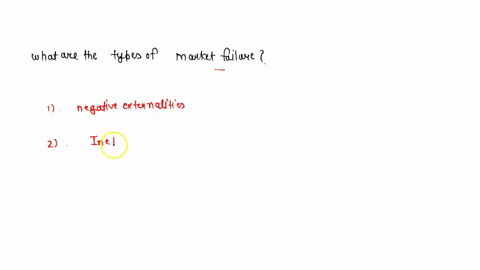 what are the types of market failure?
1). negative externalities
2).